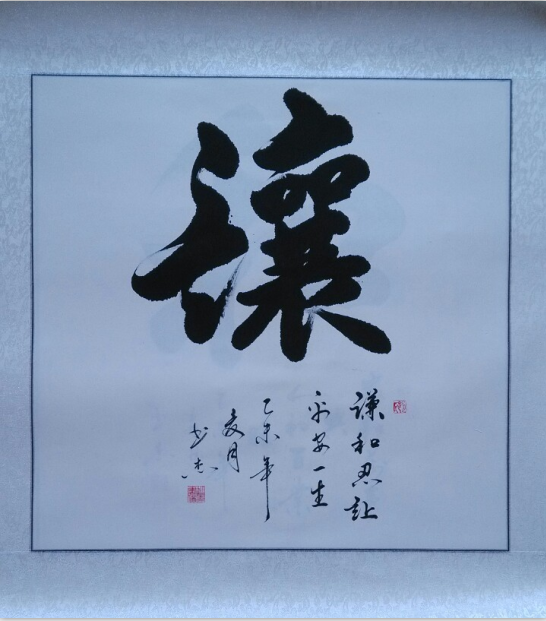 讓
谦和忍让
平安一生
乙未年
夏月
书杰